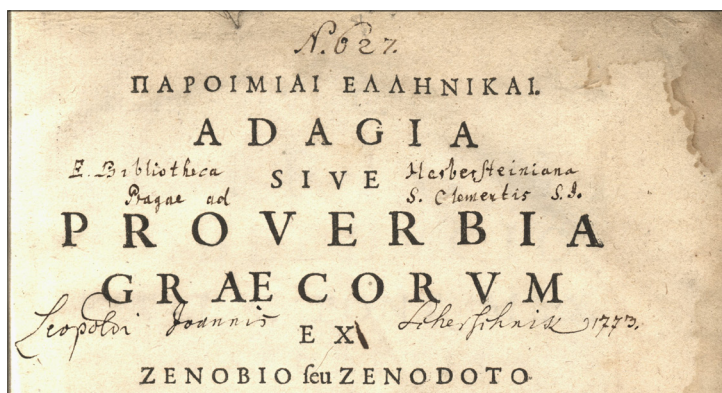 N. 627.
ΠΑΡΟΙΜΙΑΙ ΕΛΛΗΝΙΚΑΙ.
ADAGIA
E. Bibliotheca SIVE Herbersteiniana
Pragae ad S. Clementis S.J.
PROVERBIA
GRAECORVM
Leopoldi Joannis Scherschnik 1773.
EX
ZENOBIO ſeu ZENODOTO